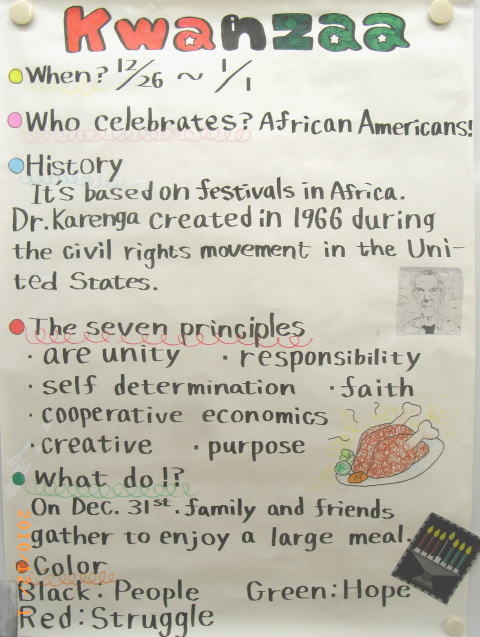 Kwanzaa
When? 12/26 ~ 1/1
Who celebrates? African Americans!
History
It's based on festivals in Africa.
Dr. Karenga created in 1966 during
the civil rights movement in the Uni-
ted States.
The seven principles
· are unity · responsibility
· self determination · faith
· cooperative economics
· creative · purpose
What do I?
On Dec. 31st. family and friends
gather to enjoy a large meal.
Color
Black: People Green: Hope
Red: Struggle